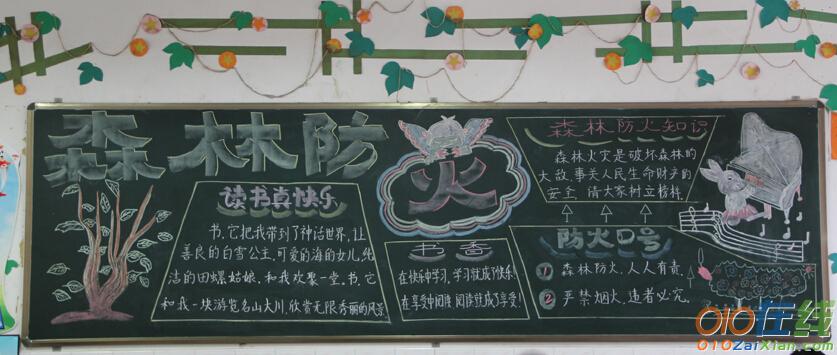 森林防火
读书真快乐
书,它把我带到了神话世界,让
善良的白雪公主,可爱的海的女儿,纯
洁的田螺姑娘,和我欢聚一堂。书,它
和我一块游览名山大川,欣赏无限秀丽的风景
书香
在快乐中学习,学习就成了快乐!
在享受中阅读,阅读就成了享受!
森林防火知识
森林火灾是破坏森林的
大敌,事关人民生命财产的
安全,请大家树立榜样。
防火口号
1 森林防火,人人有责。
2 严禁烟火,违者必究。
010在线
010ZaiXian.com